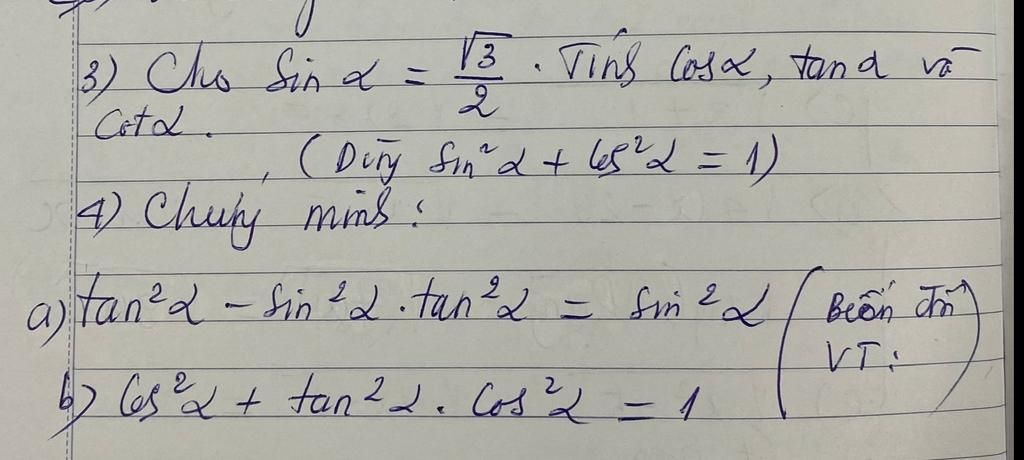 3) Cho Sin α = √3/2 . Tính Cosα, tanα và
Cotα.
(Dùng Sin²α + Cos²α = 1)
4) Chứng minh :
a) tan²α - Sin²α . tan²α = Sin²α (Biến đổi
VT :)
b) Cos²α + tan²α . Cos²α = 1